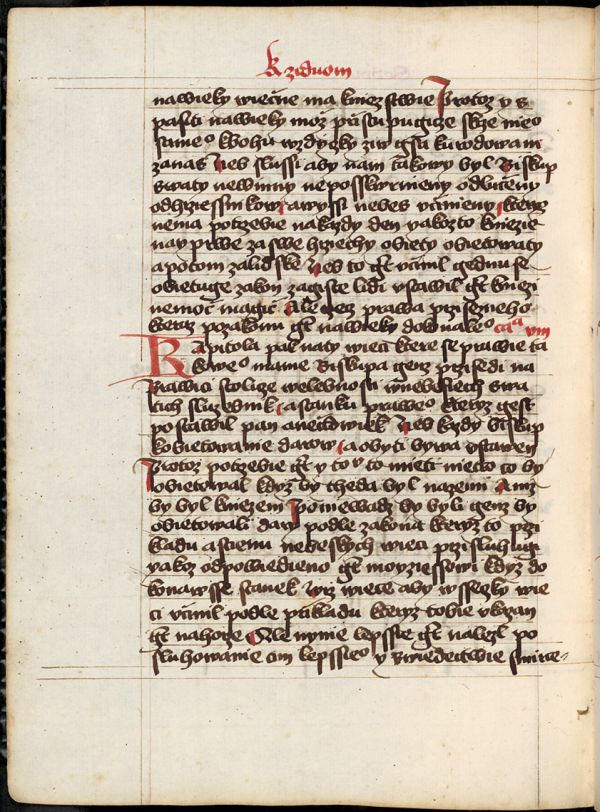 K ziduom
nawieky wiečne ma kniezstwie Protoz y s
pasiti nawieky moz přistupugicze skrze nieo
sameo kbohu wzdyczky ziw gsa kuwodowani
zanas Neb slussi aby nam takowy byl Biskup
swaty newinny neposskwrnieny odluczeny
odhrziessnikow a wyssi nebes vcinieny kteryz
nema potrzebie nakazdy den yakozto kniezie
nayprwe zaswe hrziechy obiety obietowaty
apotom zalidske Neb to gt vcinil gednu se
obietuge zakon zagiste lidi vstawil gt kniezi
nemoc magic Ale rzecz prawa przisezneho
kteraz pozakonu gt nawieky dokonaleo caa viii
Kapitola pak naty wieci ktere se prawie ta
koweo mame Biskupa genz przisedi na
Prawici stolice welebnosti wnebesiech swa
tich sluzebnik a stanku praweo kteryz gest
postawil pan aneclowiek Neb kazdy biskup
kobietowanie darow a obyeti bywa vstawen
Protoz potrzebie gt y tou to mieti nieco co by
obietowal kdyz by theda byl nazemi Aniz
by byl kniezem poniewadz by byli genz by
obietowali dary podle zakona kteryz to przi
kladu a stienu nebeskych wieci przisluhugi
yakoz odpowiedieno gt moyziessowi kdyz do
konawsse stanek Wiz wiece aby wsseczky wie
ci vcinil podle przikladu kteryz tobie vkazan
gt nahorze Ale nynie lepssie gt nalezl po
sluhowanie cim lepssieo y swiedectwie smirce-